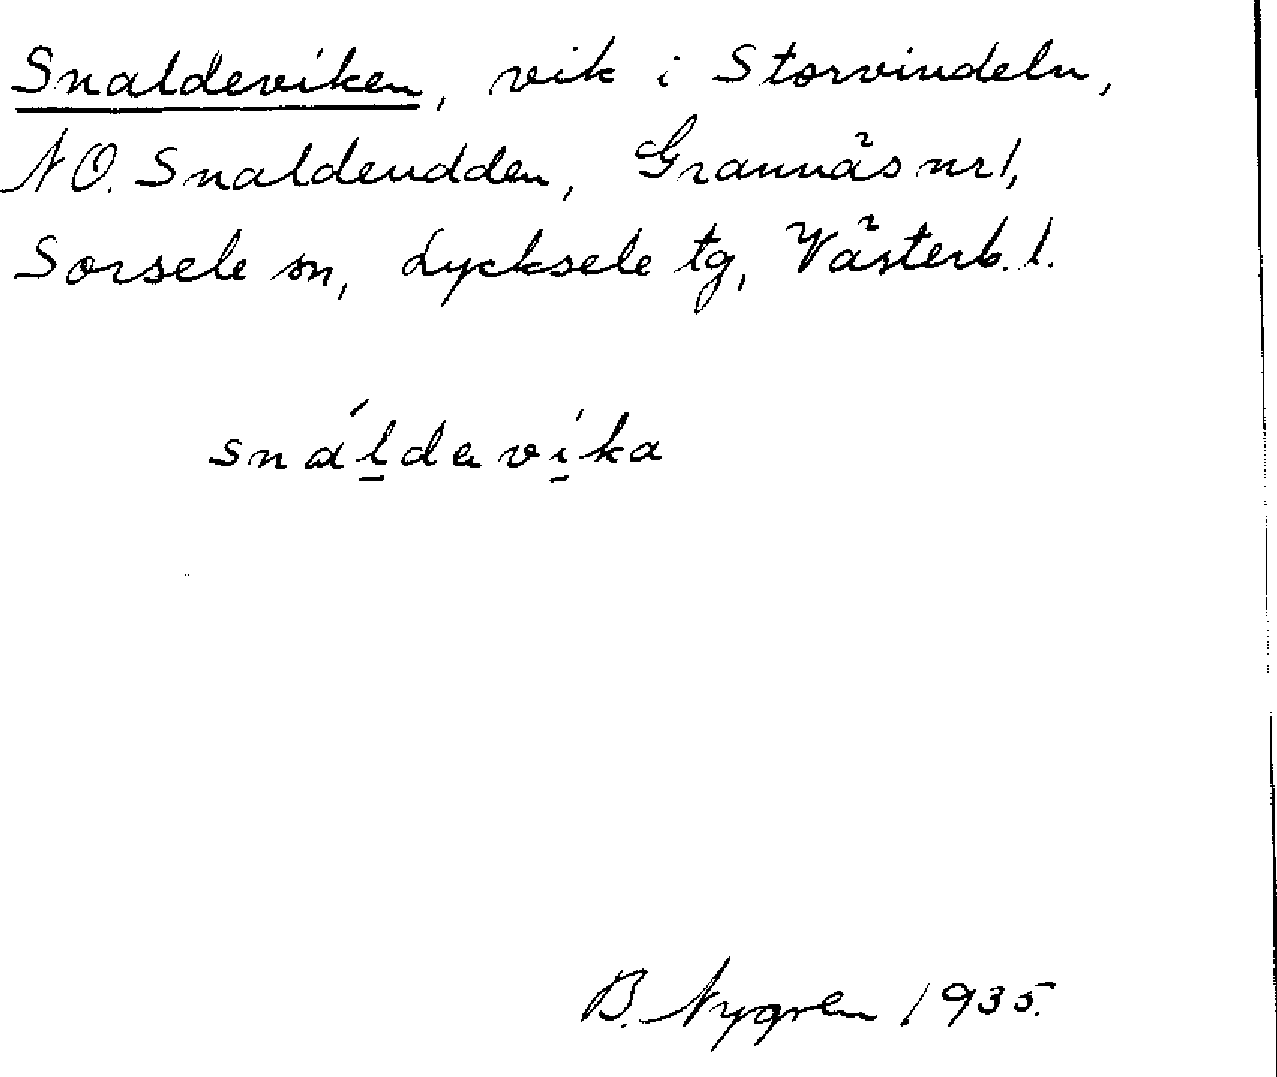 Snaldeviken, vik i Storvindeln,
NO. Snaldeudden, Grannäs nr 1,
Sorsele sn, Lycksele tg, Västerb. l.
snáḻdevi̱ʹka
B. Nygren 1935.